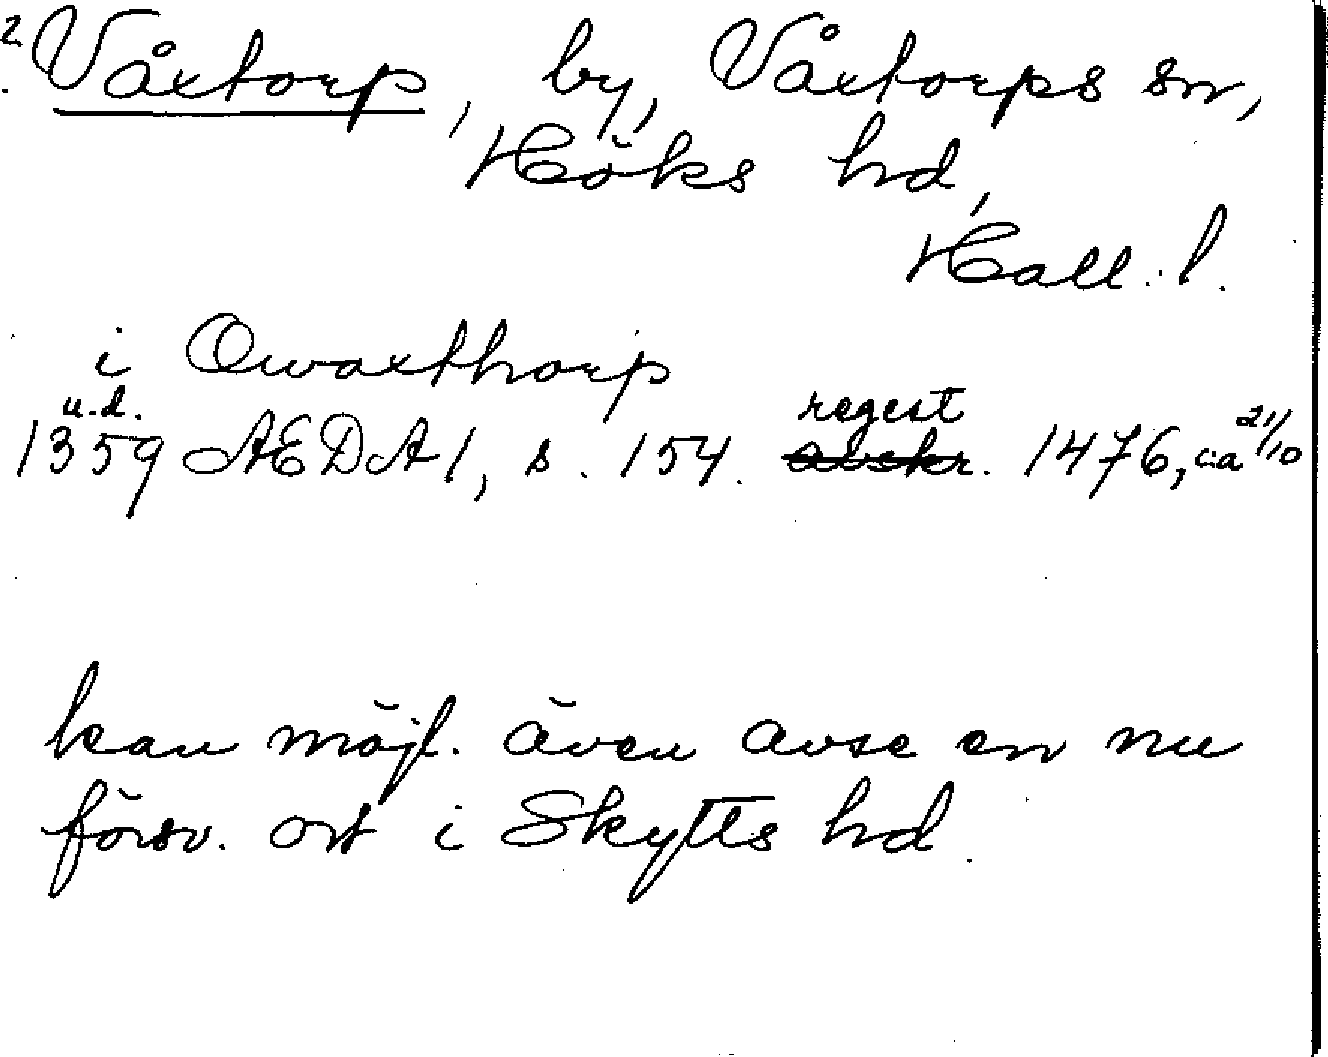 ? Våxtorp, by, Våxtorps sn,
Höks hd,
Hall. l.
i Qwaxthorp
u.d. regest
1359 AEDA 1, s. 154. avskr. 1476, ca 21/10
kan möjl. även avse en nu
försv. ort i Skytts hd.